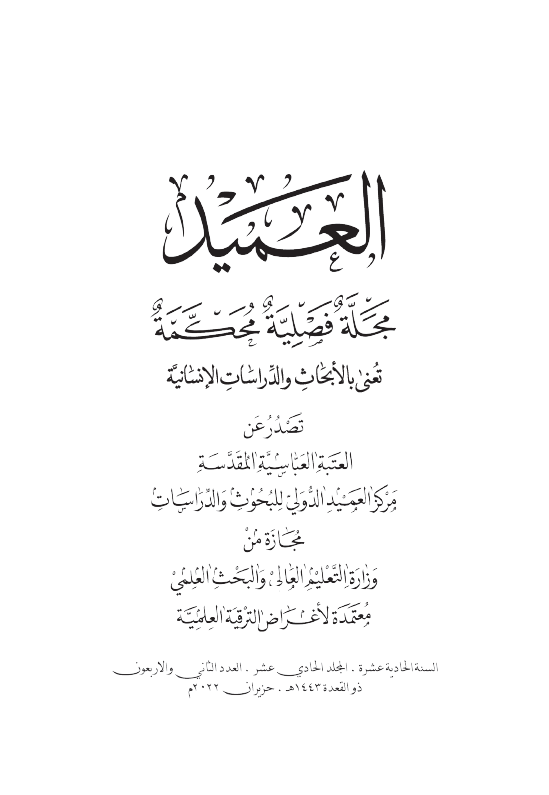 العميد
مَجَلَّةٌ فَصْلِيَّةٌ مُحَكَّمَةٌ
تُعنى بالأبحَاثِ والدِّراسَاتِ الإنسَانيَّة
تَصْدُرُ عَن
العتَبَةِ العَبَّاسِيَّةِ المُقَدَّسَةِ
مَرْكَزِ العَمِيْدِ الدُّوَلِيّ لِلبُحُوْثِ وَالدِّرَاسَاتِ
مُجَازَة مِنْ
وَزَارَةِ التَّعْلِيْمِ العَالِي وَالبَحْثِ العِلْمِيّ
مُعتَمَدَة لأغْرَاض التَرقيَة العِلمِيَّة
السنة الحادية عشرة . المجلد الحادي عشر . العدد الثاني والاربعون
ذو القعدة ١٤٤٣هـ . حزيران ٢٠٢٢م